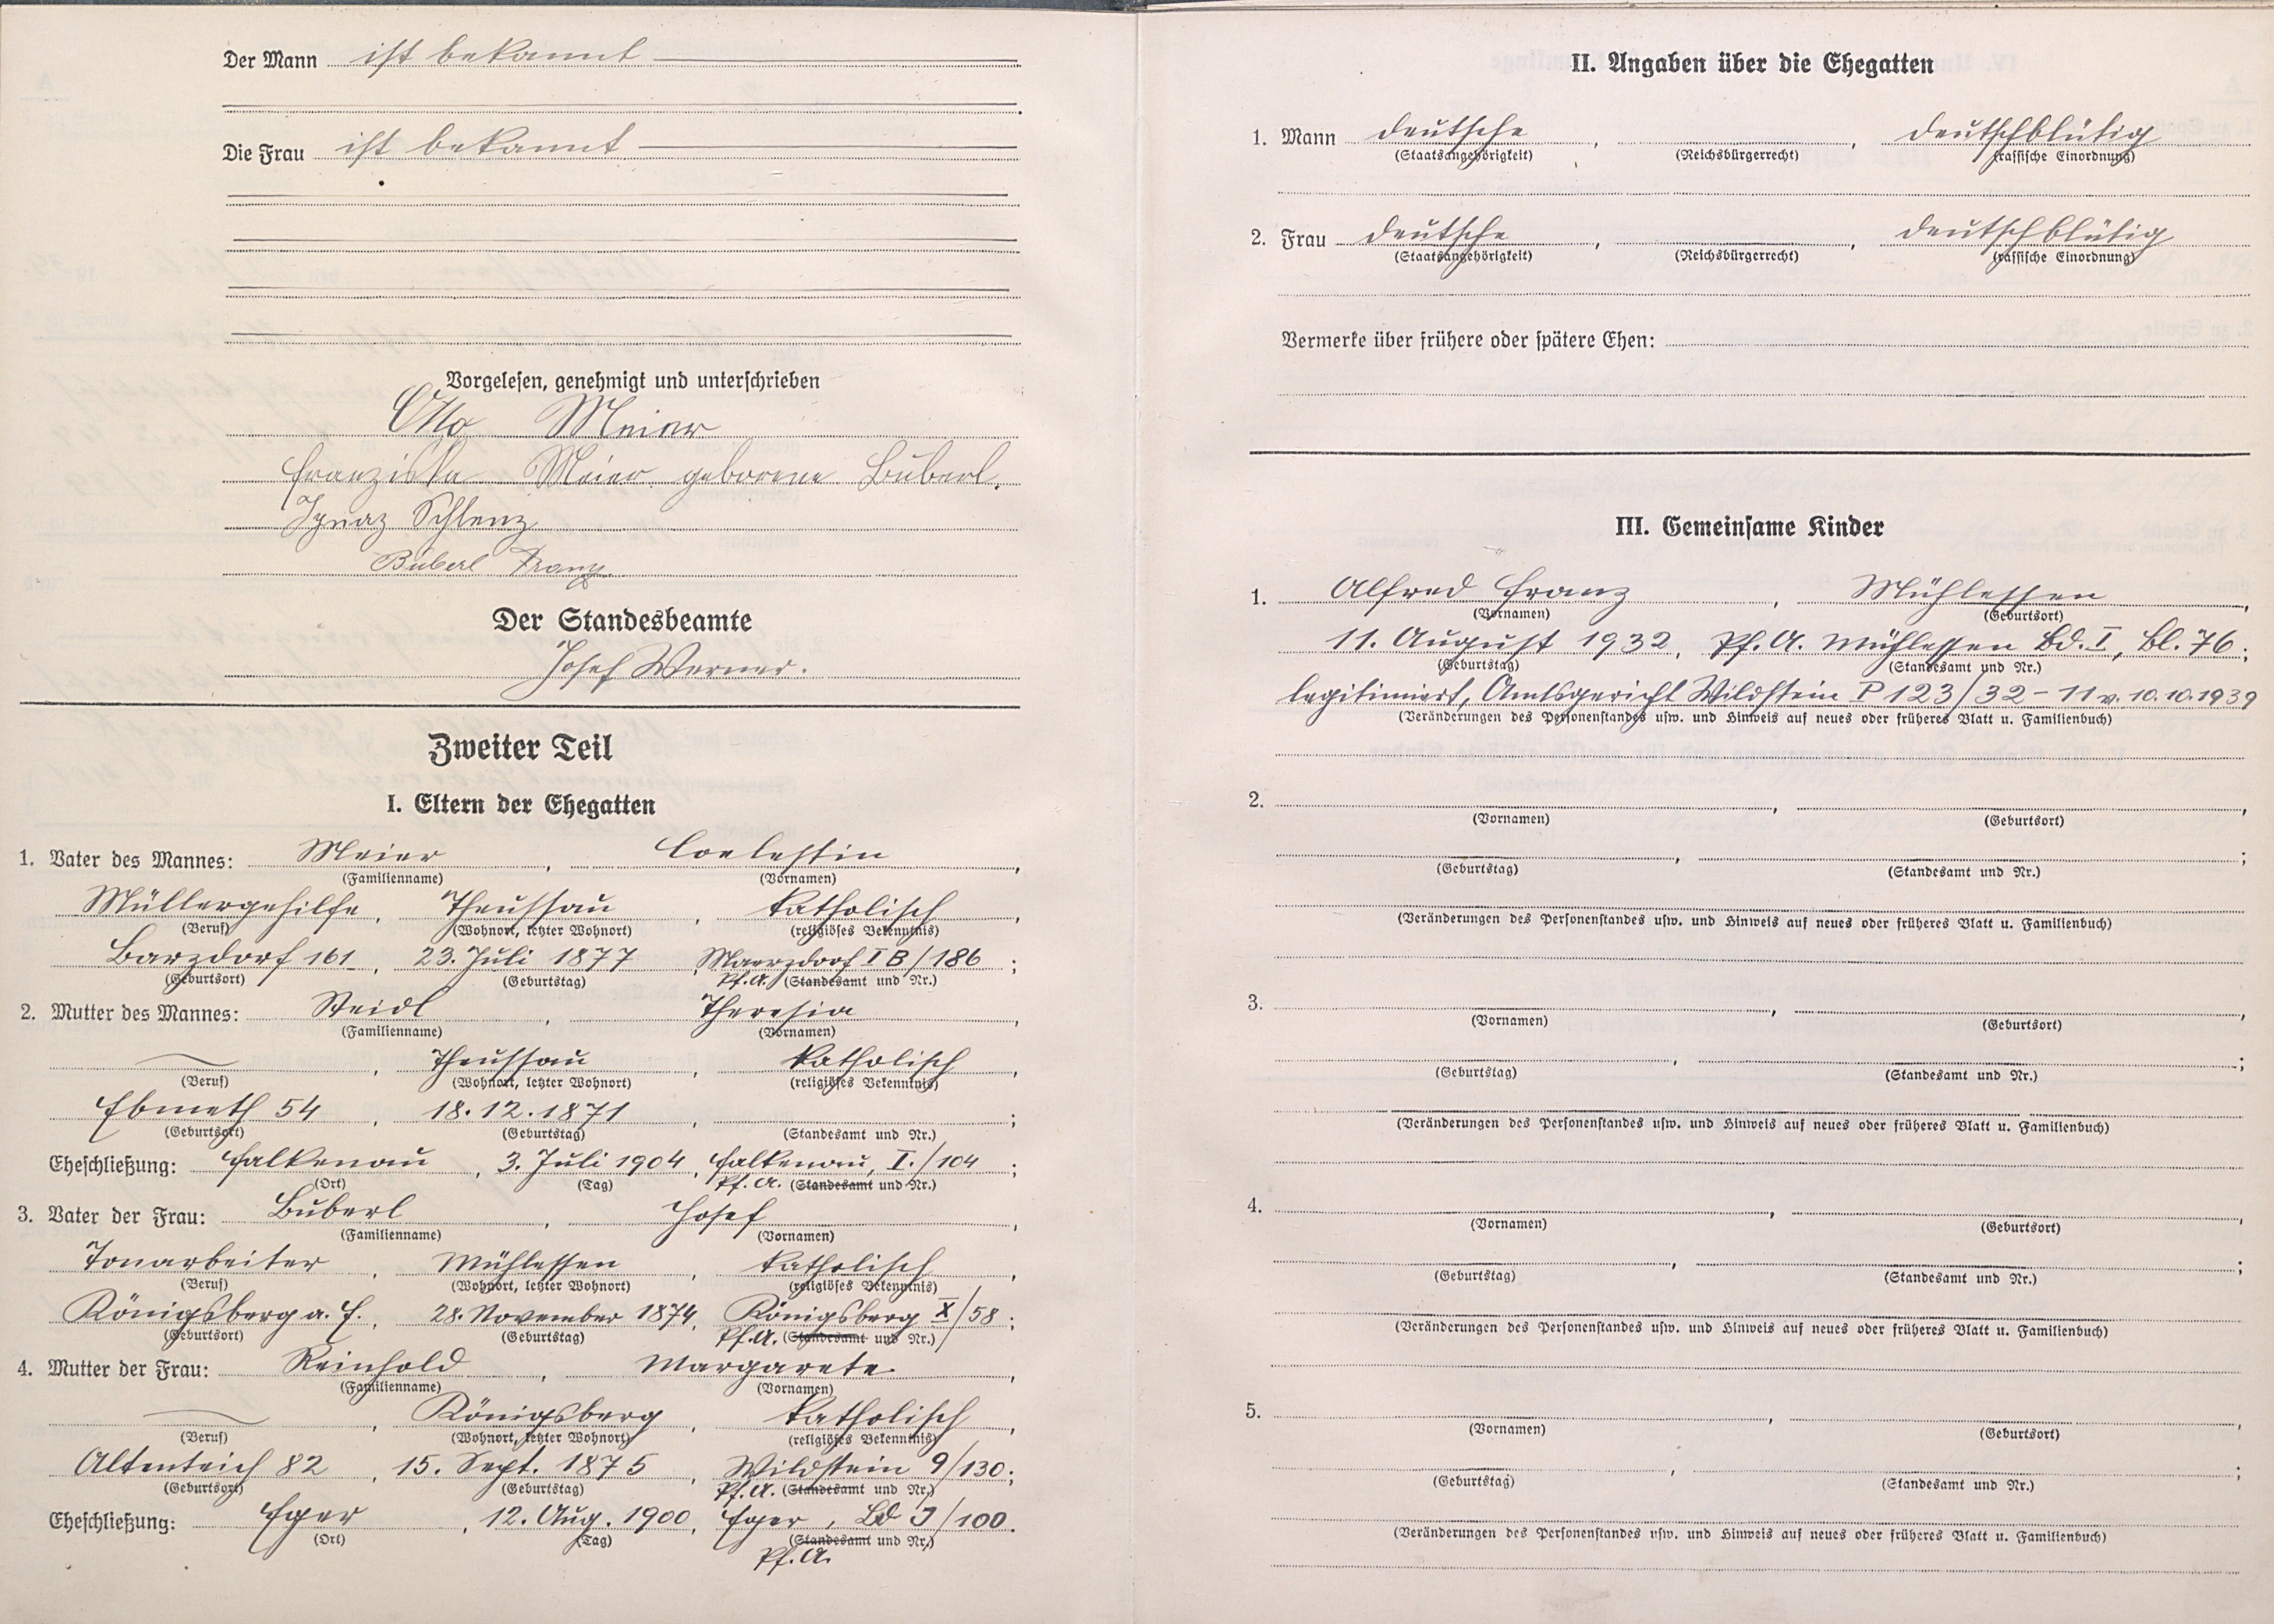 Der Mann ist bekannt
Die Frau ist bekannt
Vorgelesen, genehmigt und unterschrieben
Otto Meier
Franziska Meier geborene Büberl.
Ignaz Schlenz
Büberl Franz
Der Standesbeamte
Josef Werner.
Zweiter Teil
I. Eltern der Ehegatten
1. Vater des Mannes: Meier, Coelestin,
(Familienname) (Vornamen)
Müllergehilfe, Theussau, katholisch,
(Beruf) (Wohnort, letzter Wohnort) (religiöses Bekenntnis)
Barzdorf 161, 23. Juli 1877, Maerzdorf I B/186;
(Geburtsort) (Geburtstag) Pf.A. (Standesamt und Nr.)
2. Mutter des Mannes: Steidl, Theresia,
(Familienname) (Vornamen)
, Theussau, katholisch,
(Beruf) (Wohnort, letzter Wohnort) (religiöses Bekenntnis)
Ebmeth 54, 18.12.1871, ;
(Geburtsort) (Geburtstag) (Standesamt und Nr.)
Eheschließung: Falkenau, 3. Juli 1904, Falkenau, I./104;
(Ort) (Tag) Pf. A. (Standesamt und Nr.)
3. Vater der Frau: Büberl, Josef,
(Familienname) (Vornamen)
Tonarbeiter, Mühlessen, katholisch,
(Beruf) (Wohnort, letzter Wohnort) (religiöses Bekenntnis)
Königsberg a. E., 28. November 1874, Königsberg X/58;
(Geburtsort) (Geburtstag) Pf.A. (Standesamt und Nr.)
4. Mutter der Frau: Reinhold, Margarete,
(Familienname) (Vornamen)
, Königsberg, katholisch,
(Beruf) (Wohnort, letzter Wohnort) (religiöses Bekenntnis)
Altenteich 82, 15. Sept. 1875, Wildstein 9/130;
(Geburtsort) (Geburtstag) Pf.A. (Standesamt und Nr.)
Eheschließung: Eger, 12. Aug. 1900, Eger, Bd J/100.
(Ort) (Tag) (Standesamt und Nr.)
Pf. A.
II. Angaben über die Ehegatten
1. Mann deutsche, , deutschblütig
(Staatsangehörigkeit) (Reichsbürgerrecht) (rassische Einordnung)
2. Frau deutsche, , deutschblütig
(Staatsangehörigkeit) (Reichsbürgerrecht) (rassische Einordnung)
Vermerke über frühere oder spätere Ehen:
III. Gemeinsame Kinder
1. Alfred Franz, Mühlessen,
(Vornamen) (Geburtsort)
11. August 1932, Pf. A. Mühlessen Bd. I, Bl. 76;
(Geburtstag) (Standesamt und Nr.)
legitimiert, Amtsgericht Wildstein P 123/32-11 v. 10.10.1939
(Veränderungen des Personenstandes usw. und Hinweis auf neues oder früheres Blatt u. Familienbuch)
2. , ,
(Vornamen) (Geburtsort)
, ;
(Geburtstag) (Standesamt und Nr.)
(Veränderungen des Personenstandes usw. und Hinweis auf neues oder früheres Blatt u. Familienbuch)
3. , ,
(Vornamen) (Geburtsort)
, ;
(Geburtstag) (Standesamt und Nr.)
(Veränderungen des Personenstandes usw. und Hinweis auf neues oder früheres Blatt u. Familienbuch)
4. , ,
(Vornamen) (Geburtsort)
, ;
(Geburtstag) (Standesamt und Nr.)
(Veränderungen des Personenstandes usw. und Hinweis auf neues oder früheres Blatt u. Familienbuch)
5. , ,
(Vornamen) (Geburtsort)
, ;
(Geburtstag) (Standesamt und Nr.)
(Veränderungen des Personenstandes usw. und Hinweis auf neues oder früheres Blatt u. Familienbuch)